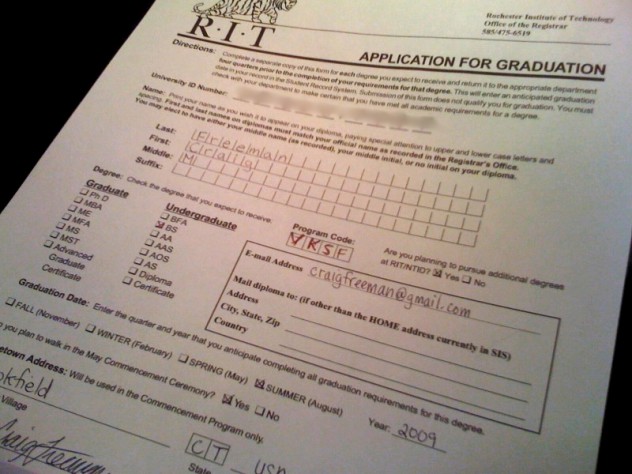 R·I·T
Rochester Institute of Technology
Office of the Registrar
585/475-6519
APPLICATION FOR GRADUATION
Directions: Complete a separate copy of this form for each degree you expect to receive and return it to the appropriate department
four quarters prior to the completion of your requirements for that degree. This will enter an anticipated graduation
date in your record in the Student Record System. Submission of this form does not qualify you for graduation. You must
check with your department to make certain that you have met all academic requirements for a degree.
University ID Number:
Name: Print your name as you wish it to appear on your diploma, paying special attention to upper and lower case letters and
spacing. First and last names on diplomas must match your official name as recorded in the Registrar's Office.
You may elect to have either your middle name (as recorded), your middle initial, or no initial on your diploma.
Last: Freeman
First: Craig
Middle: M
Suffix:
Degree: Check the degree that you expect to receive:
Graduate
Ph D
MBA
ME
MFA
MS
MST
Advanced
Graduate
Certificate
Undergraduate
BFA
BS
AA
AAS
AOS
AS
Diploma
Certificate
Program Code:
VKSF
Are you planning to pursue additional degrees
at RIT/NTID? Yes No
E-mail Address craigfreeman@gmail.com
Mail diploma to: (if other than the HOME address currently in SIS)
Address
City, State, Zip
Country
Graduation Date: Enter the quarter and year that you anticipate completing all graduation requirements for this degree.
FALL (November) WINTER (February) SPRING (May) SUMMER (August) Year: 2009
you plan to walk in the May Commencement Ceremony? Yes No
etown Address: Will be used in the Commencement Program only.
okfield CT USA
Village State
Craig Freeman